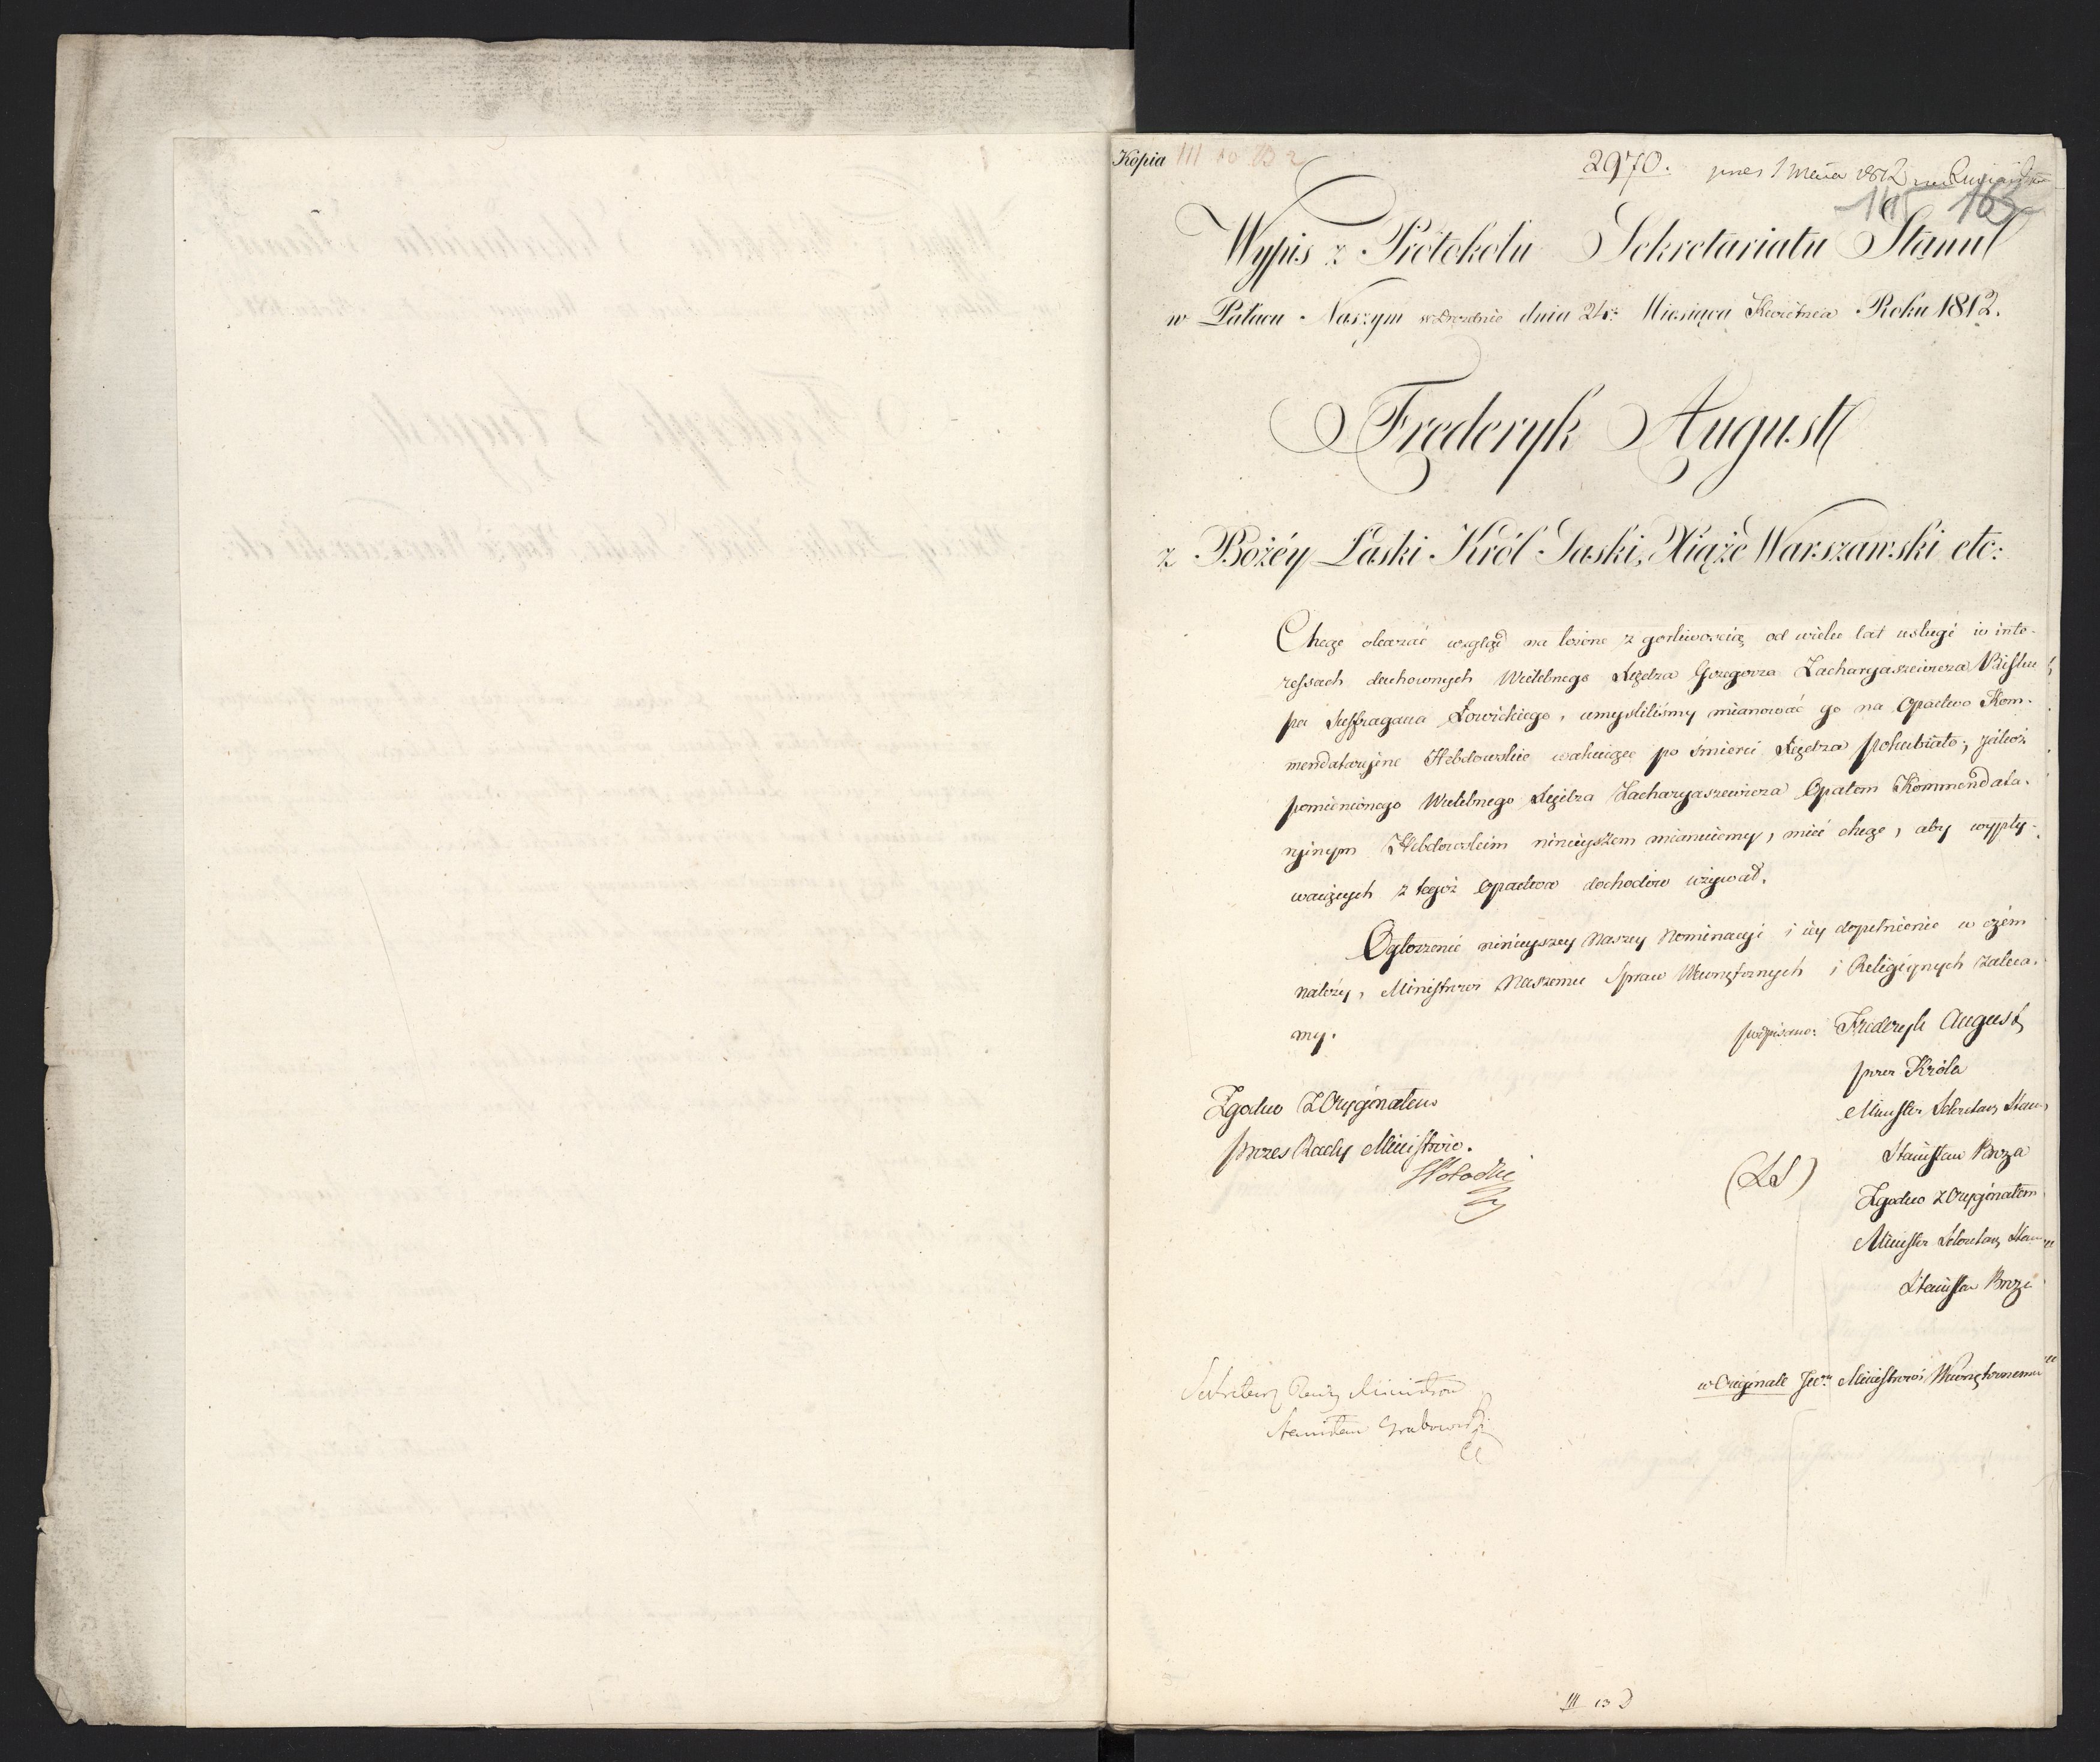 Kopia
2970.
165
Wypis z Protokołu Sekretariatu Stanu
w Pałacu Naszym w Dreznie dnia 24. Miesiąca Kwietnia Roku 1812.
Frederyk August
z Bożéy Łaski Król Saski, Xiąże Warszawski etc:
Chcąc okazać wzgląd na łożone z gorliwością od wielu lat usługi w inte-
ressach duchownych Wielebnego Xiędza Grzegorza Zacharyaszewicza Bisku
pa Suffragana Łowickiego, umyśliliśmy mianować go na Opactwo Kom-
mendataryjne Hebdowskie wakuiące po śmierci Xiędza jakoż
pomienionego Wielebnego Xiędza Zacharyaszewicza Opatem Kommendata-
ryinym Hebdowskim ninieyszem mianuiemy, mieć chcąc, aby wypły-
waiących z tegoż Opactwa dochodów używał.
Ogłoszenie ninieyszey Naszey Nominacyi i iey dopełnienie w czém
należy, Ministrowi Naszemu Spraw Wewnętrznych i Religiynych zaleca-
my.
podpisano: Frederyk August
przez Króla
Minister Sekretarz Stanu
Stanisław Breza
(LS)
Zgodno z Oryginałem
Minister Sekretarz Stanu
Stanisław Breza
Zgodno z Oryginałem
Prezes Rady Ministrów.
Sekretarz Rady Ministrów
Stanisław Grabowski
w Oryginale Ministrowi Wewnętrznemu